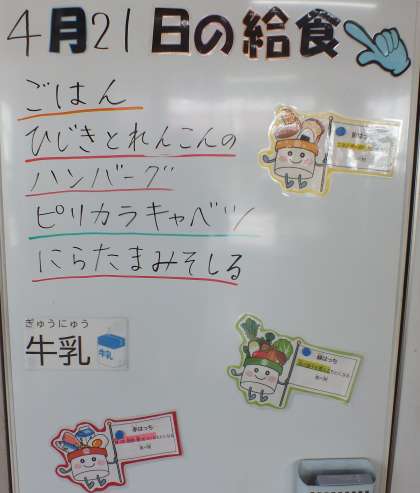 4月21日の給食
ごはん
ひじきとれんこんの
ハンバーグ
ピリカラキャベツ
にらたまみそしる
ぎゅうにゅう
牛乳
牛乳
黄はっち
緑はっち
赤はっち